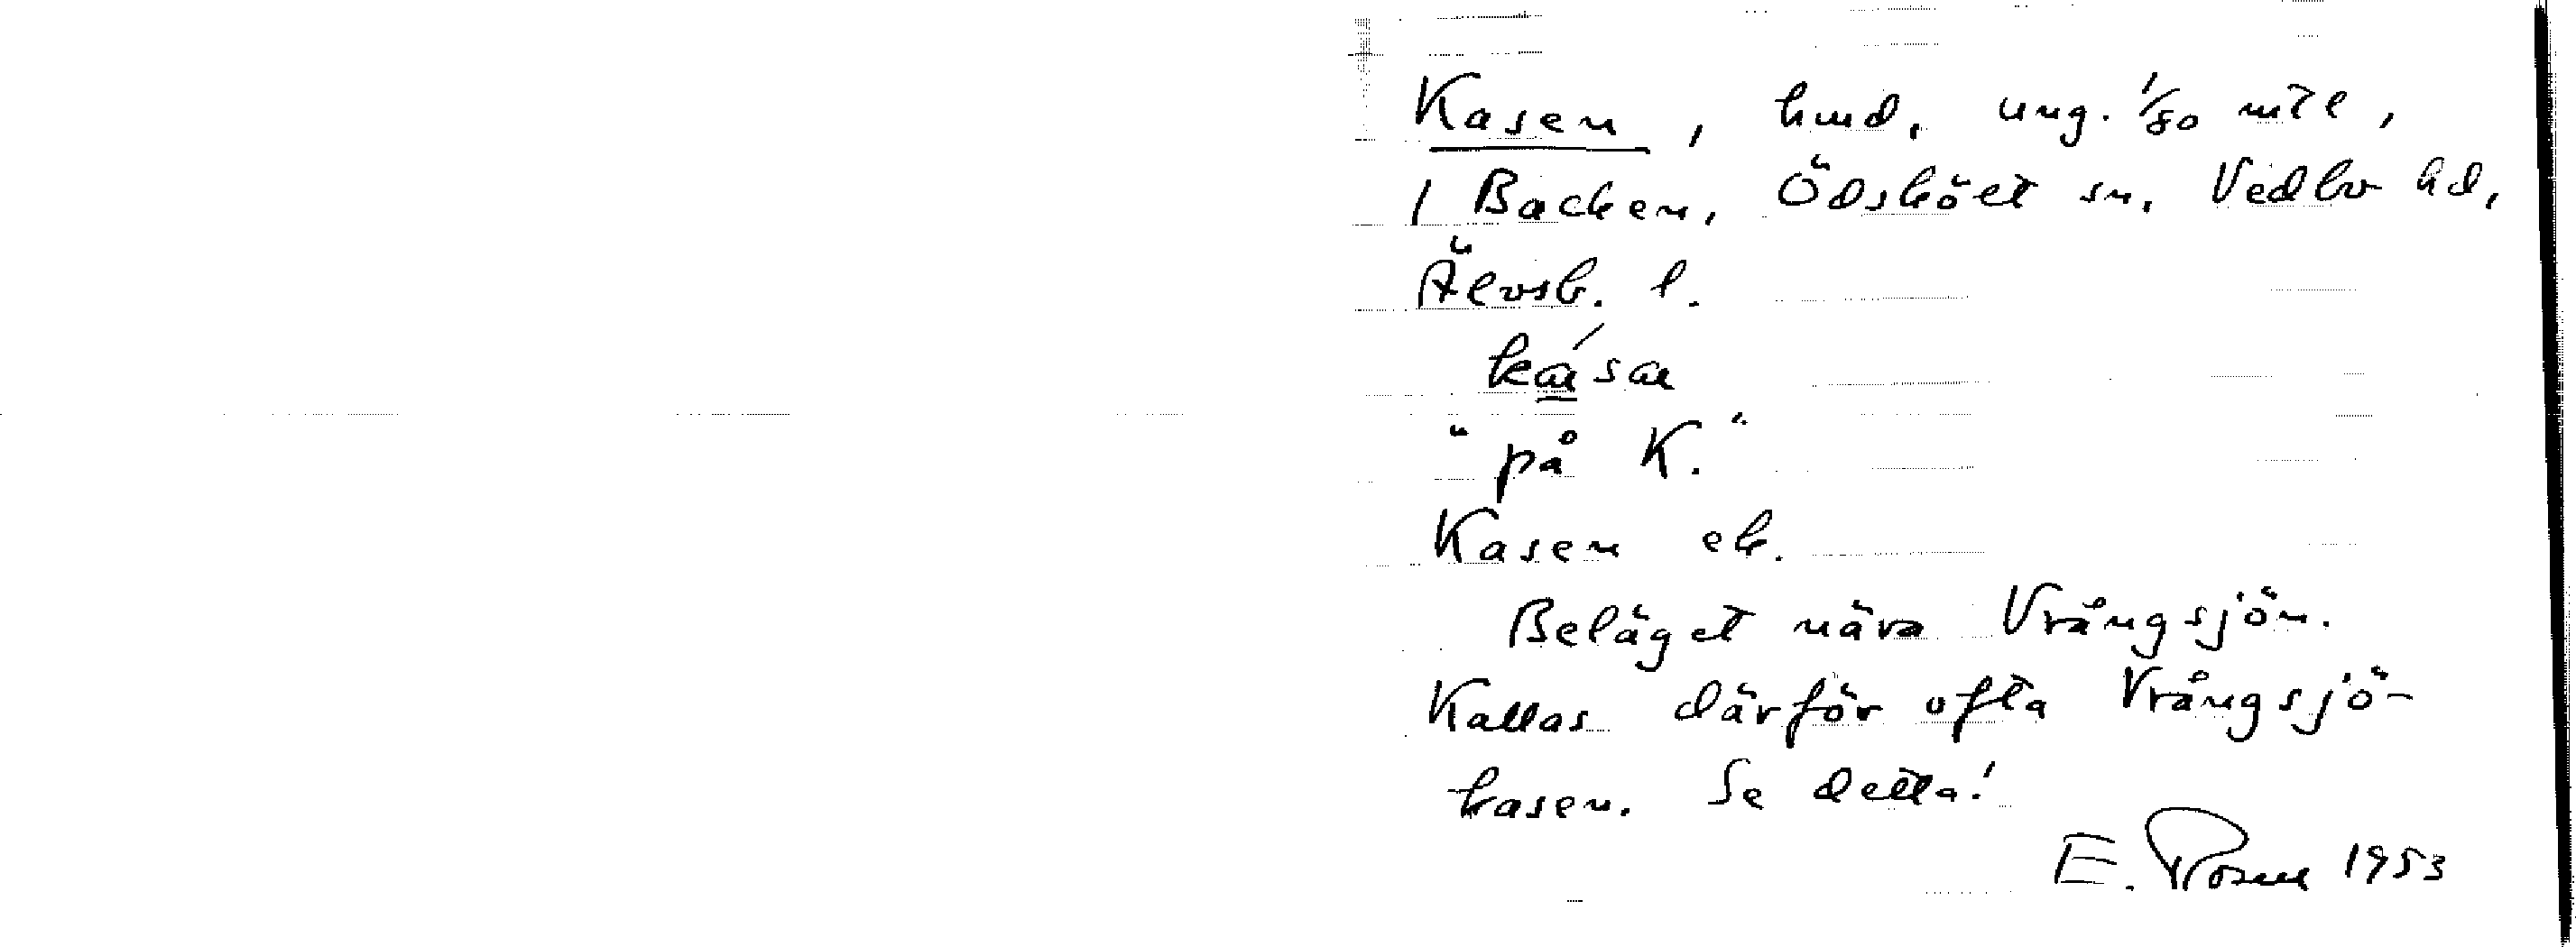 Kasen, hmd, ung. 1/80 mtl,
1 Backen, Ödskölt sn, Vedbo hd,
Älvsb. l.
ka̲´sa
"på K."
Kasen ek.
Beläget nära Vrångsjön.
Kallas därför ofta Vrångsjö-
kasen. Se detta!
E. Rosen 1953